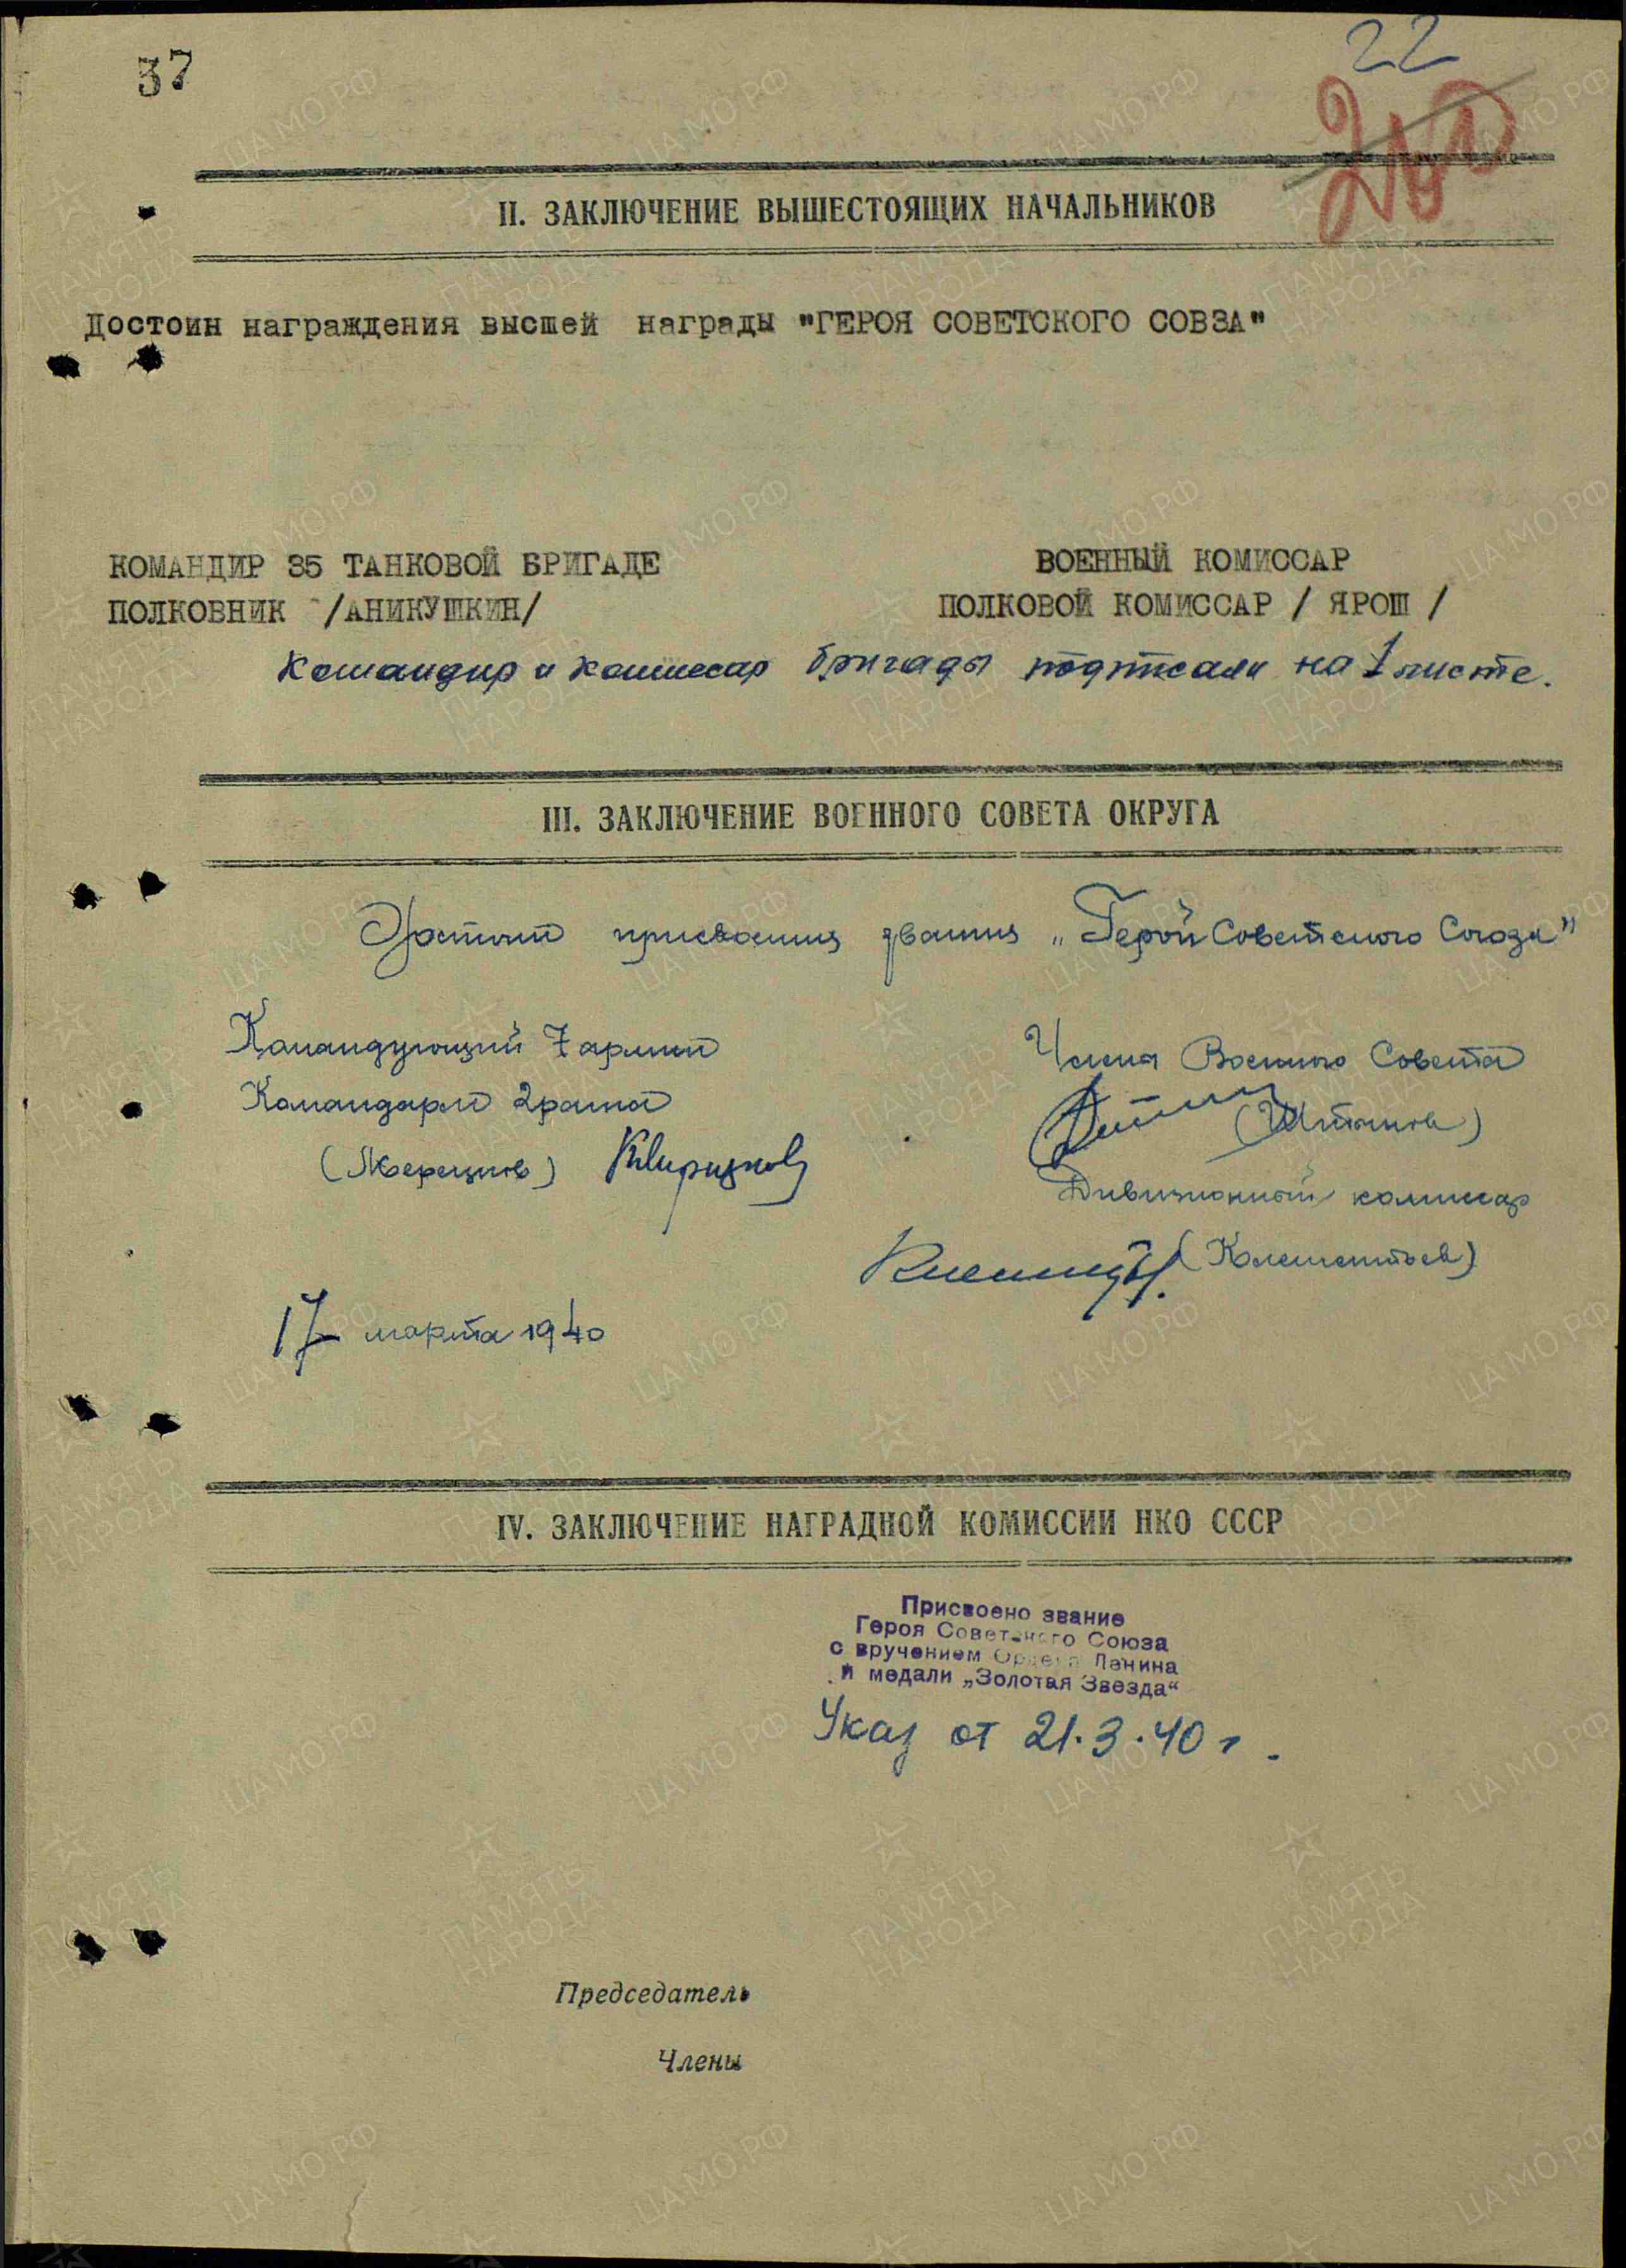 37
22
II. ЗАКЛЮЧЕНИЕ ВЫШЕСТОЯЩИХ НАЧАЛЬНИКОВ
Достоин награждения высшей награды "ГЕРОЯ СОВЕТСКОГО СОВЗА"
КОМАНДИР 35 ТАНКОВОЙ БРИГАДЕ
ПОЛКОВНИК /АНИКУШКИН/
ВОЕННЫЙ КОМИССАР
ПОЛКОВОЙ КОМИССАР / ЯРОШ /
Командир и комиссар бригады подписали на 1 листе.
III. ЗАКЛЮЧЕНИЕ ВОЕННОГО СОВЕТА ОКРУГА
Достоин присвоения звания „Герой Советского Союза"
Командующий 7 армией
Командарм 2 ранга
(Мерецков) КМерецков
Члены Военного Совета
Дивизионный комиссар
(Клементьев)
17 марта 1940
IV. ЗАКЛЮЧЕНИЕ НАГРАДНОЙ КОМИССИИ НКО СССР
Присвоено звание
Героя Советского Союза
с вручением Ордена Ленина
и медали „Золотая Звезда“
Указ от 21.3.40 г.
Председатель
Члены
ЦА МО РФ
ПАМЯТЬ
НАРОДА